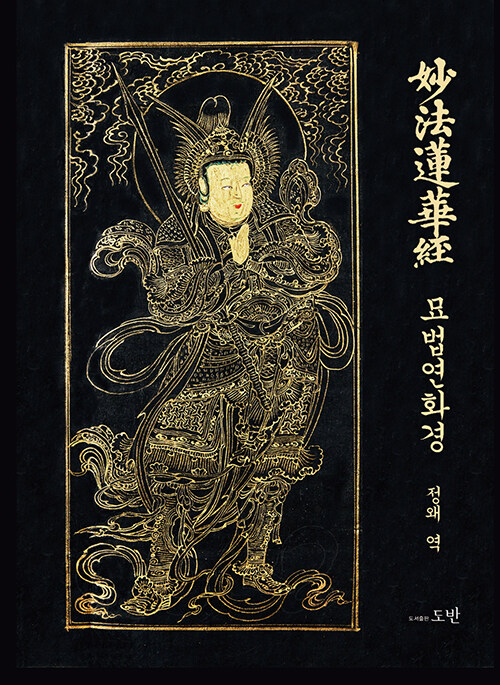 妙法蓮華經
묘법연화경
정왜 역
도서출판 도반